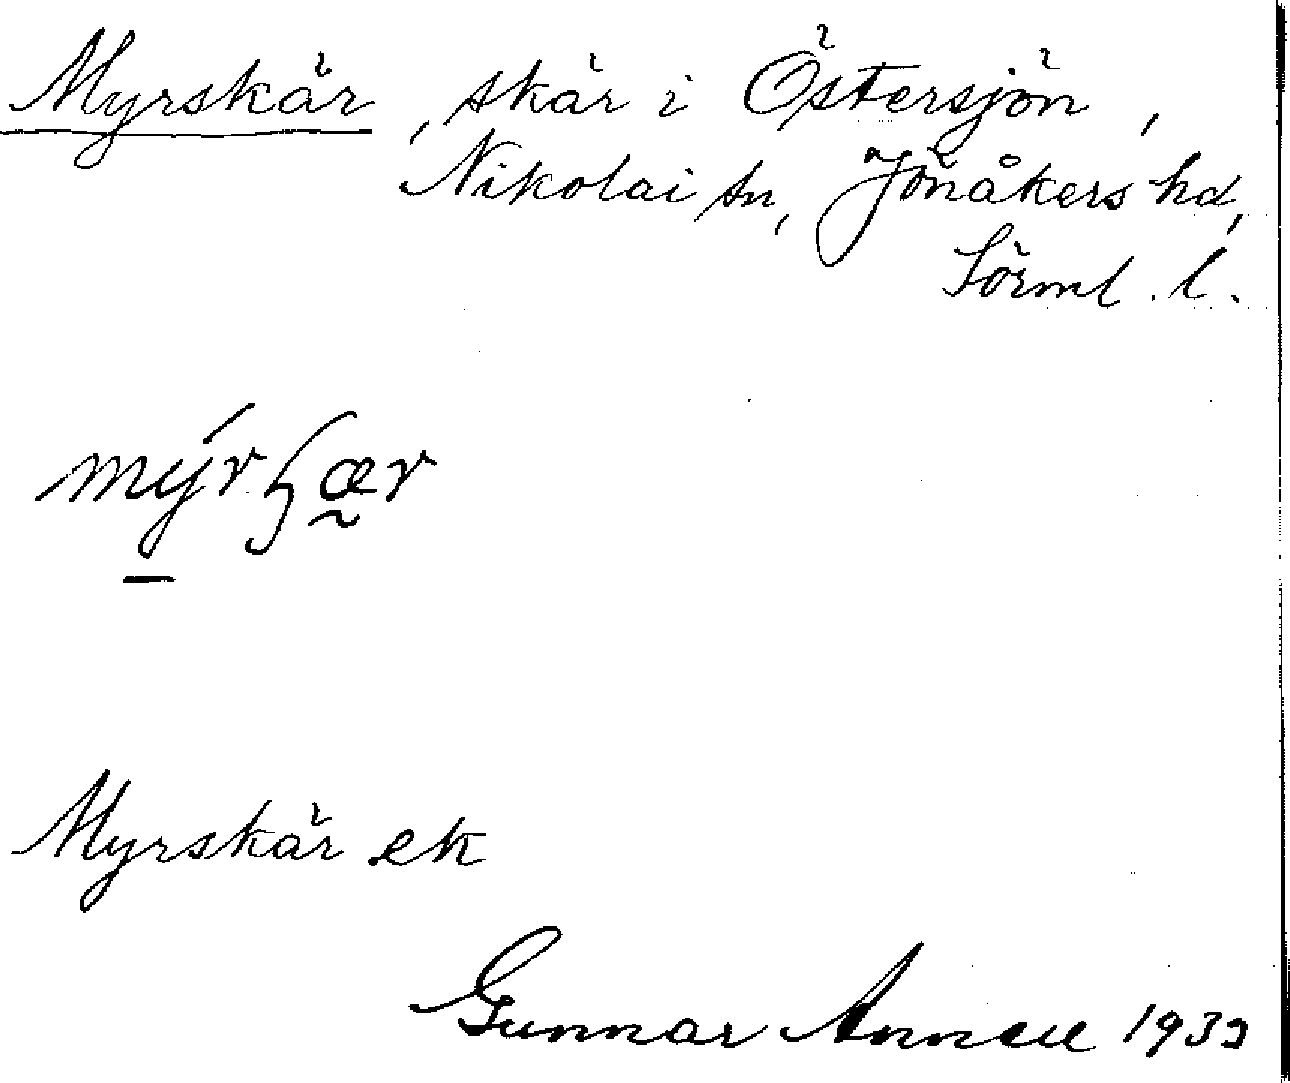 Myrskär, skär i Östersjön,
Nikolai sn, Jönåkers hd,
Sörml. l.
Myrskär ek
Gunnar Annell